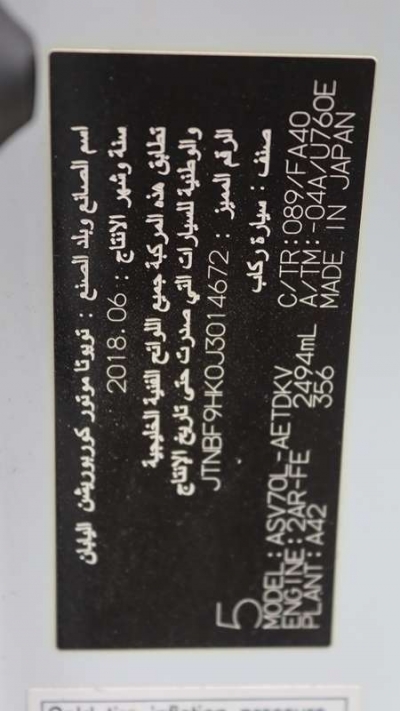 اسم الصانع وبلد الصنع : تويوتا موتور كوربوريشن اليابان
سنة وشهر الانتاج : 2018.06
تطابق هذه المركبة جميع اللوائح الفنية الخليجية
والوطنية للسيارات التي صدرت حتى تاريخ الانتاج
الرقم المميز : JTNBF9HK0J3014672
صنف : سيارة ركاب
5
MODEL : ASV70L-AETDKV C/TR : 089/FA40
ENGINE : 2AR-FE 2494mL A/TM : -04A/U760E
PLANT : A42 356 MADE IN JAPAN